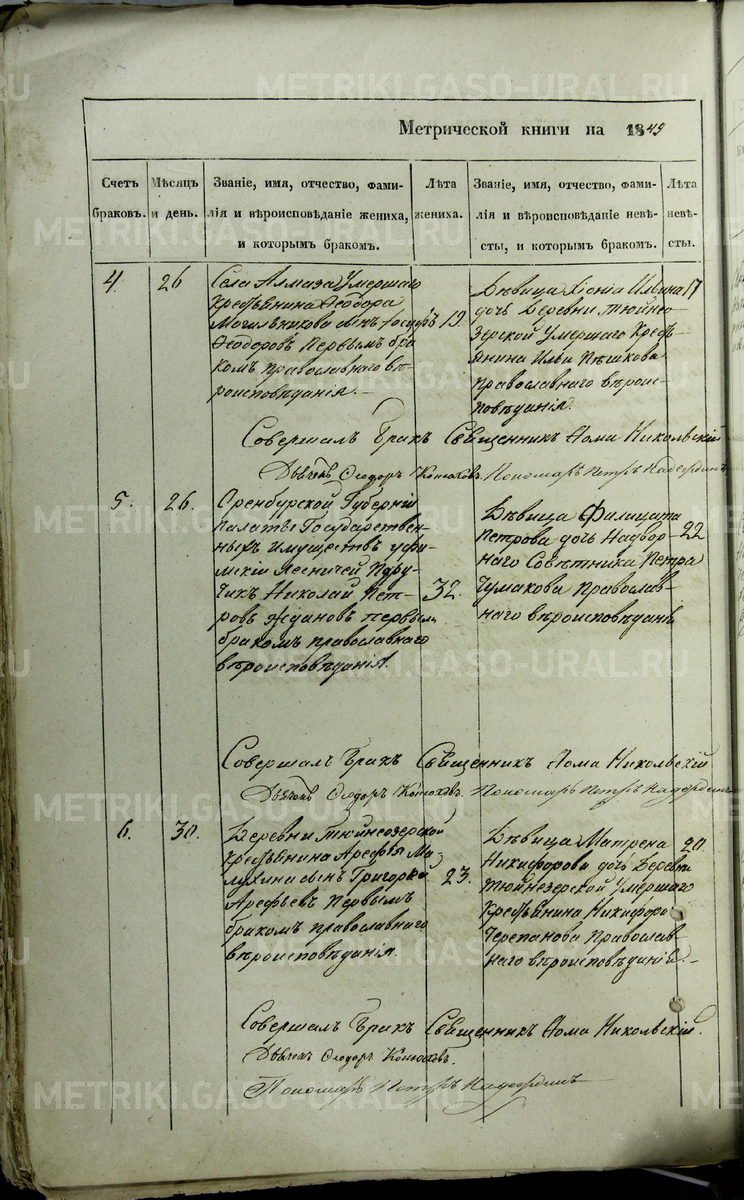 Метрической книги на 1849
Счетъ браковъ.
Мѣсяцъ и день.
Званіе, имя, отчество, фами-
лія и вѣроисповѣданіе жениха,
и которымъ бракомъ.
Лѣта жениха.
Званіе, имя, отчество, фами-
лія и вѣроисповѣданіе невѣ-
сты, и которымъ бракомъ.
Лѣта невѣ-
сты.
4.
26
Села Алмаза умершаго
Крестьянина Ѳеодора
Могильникова сынъ
Ѳеодоровъ первымъ бра
комъ православнаго вѣ-
роисповѣданія.
19.
Дѣвица Хіонія Ильина
дочь Деревни Тюйнео-
зерской умершаго Кресть-
янина Ильи Пѣшкова
православнаго вѣроис-
повѣданія.
17
Совершалъ Бракъ Священникъ Ѳома Никольскій
Дьячекъ Ѳеодоръ Конюховъ. Пономарь Петръ
5.
26.
Оренбурской Губерніи
палаты Государствен-
ныхъ имуществъ Уфи-
мскій Лесничей Пору-
чикъ Николай Пет-
ровъ Ждановъ первымъ
бракомъ православнаго
вѣроисповѣданія.
32.
Дѣвица Филицата
Петрова дочь Надвор-
наго Совѣтника Петра
Чумакова Православ-
наго вѣроисповѣданія
22
Совершалъ Бракъ Священникъ Ѳома Никольскій
Дьячекъ Ѳеодоръ Конюховъ. Пономарь Петръ
6.
30.
Деревни Тюйнеозерской
Крестьянина Арефья Ма-
лухина сынъ Григорей
Арефьевъ Первымъ
бракомъ православнаго
вѣроисповѣданія.
23.
Дѣвица Матрена
Никифорова дочь Деревни
Тюйнезерской умершаго
Крестьянина Никифора
Черепанова Православ-
наго вѣроисповѣданія
20
Совершалъ Бракъ Священникъ Ѳома Никольскій.
Дьячекъ Ѳеодоръ Конюховъ.
Пономарь Петръ
METRIKI.GASO-URAL.RU